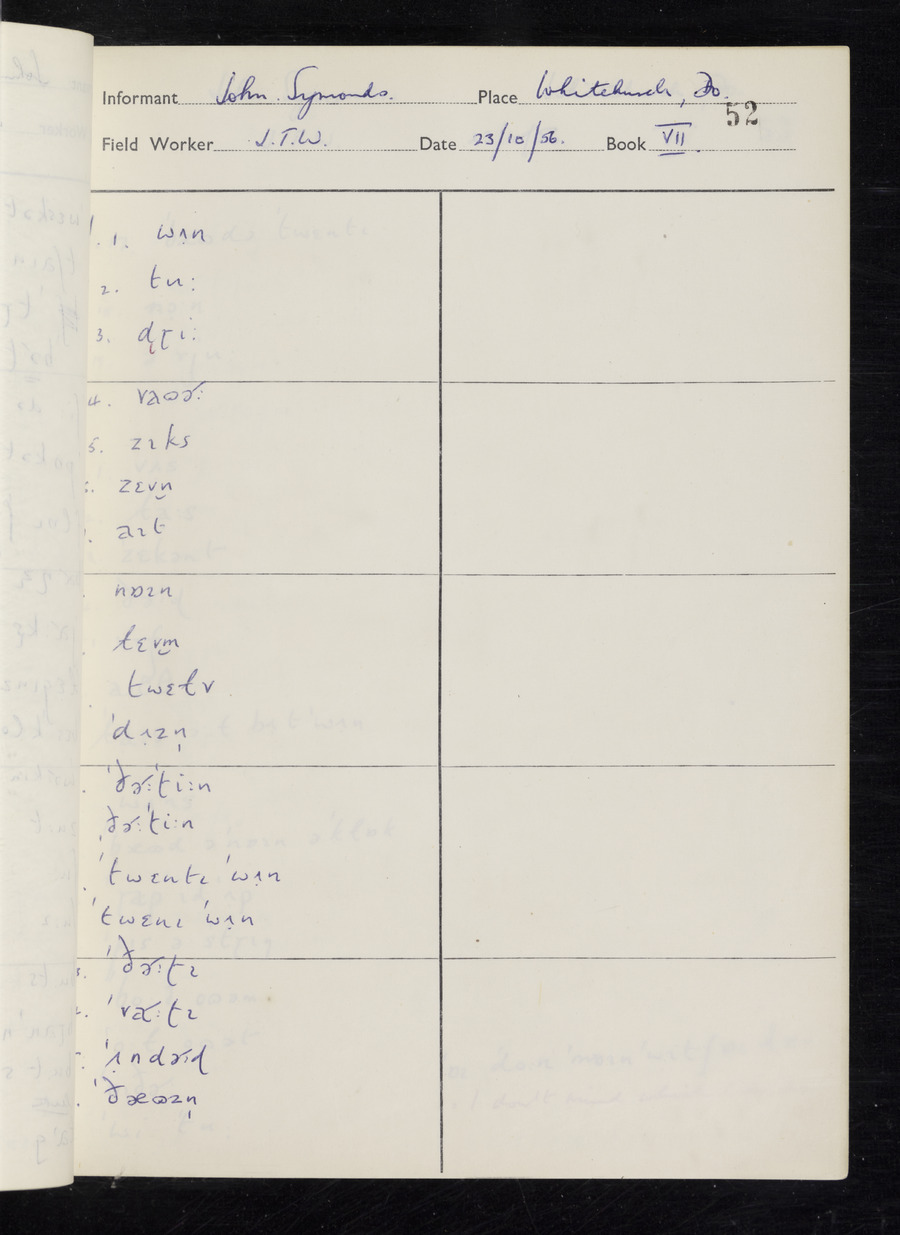 Informant John Symonds. Place Whitchurch, Do.
52
Field Worker J.T.W. Date 23/10/56. Book VII.
1. 1. wʌn
2. tu:
3. dɽi:
4. vaʊɚ:
5. zɪks
zɛvn̩
aɪt
nɒɪn
tɛvm̩
twɛɫv
ˈdʌzn̩
ˈðɚ:ˈti:n
ˈðɚ:ˈti:n
ˈtwɛntɪ ˈwʌn
ˈtwɛnɪ ˈwʌn
ˈðɚ:tɪ
ˈvɚ:tɪ
ˈʌndɚd
ˈðæʊzn̩